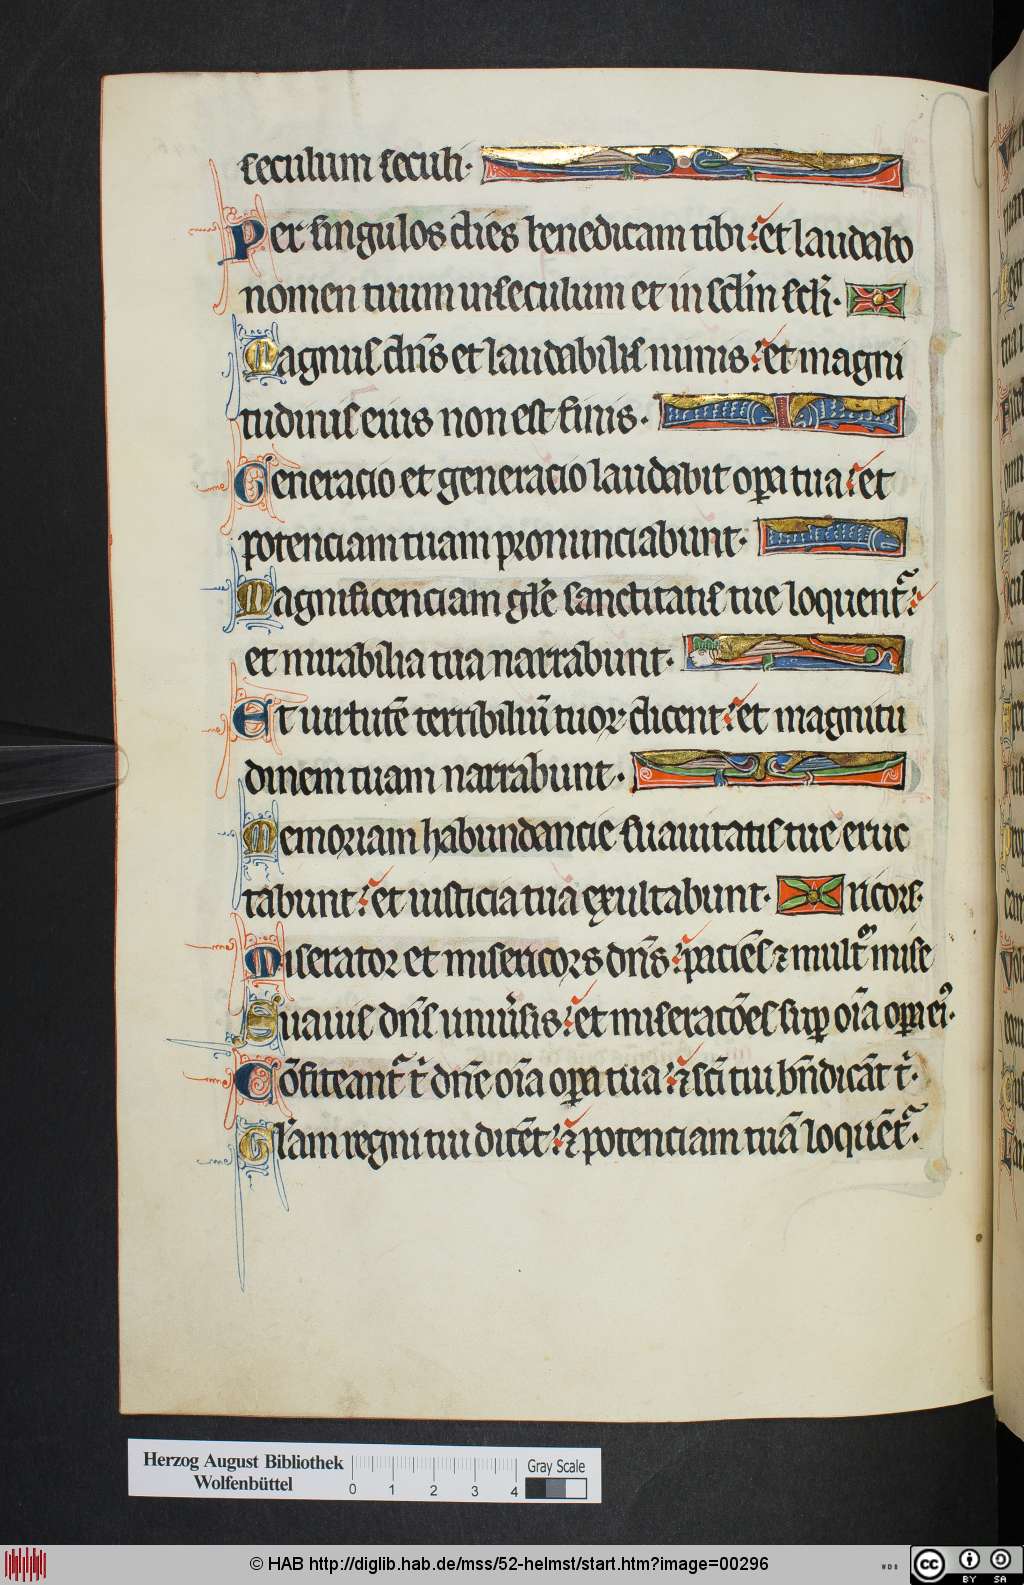 seculum seculi.
Per singulos dies benedicam tibi: et laudabo
nomen tuum in seculum et in sclm scli.
Magnus dns et laudabilis nimis: et magni
tudinis eius non est finis.
Generacio et generacio laudabit opa tua: et
potenciam tuam pronunciabunt.
Magnificenciam gle sanctitatis tue loquent:
et mirabilia tua narrabunt.
Et uirtutē terribiliū tuor dicent: et magnitu
dinem tuam narrabunt.
Memoriam habundancie suauitatis tue eruc
tabunt: et iusticia tua exultabunt. ricors.
Miserator et misericors dns: paciēs ⁊ mult mise
Suauis dns uniusis: et miseracōes sup oīa opa ei.
Cōfiteant t dne oīa opa tua: ⁊ sci tui bndicāt t.
Glam regni tui dicēt: ⁊ potenciam tuā loquēt.
Herzog August Bibliothek
Wolfenbüttel
0 1 2 3 4
Gray Scale
© HAB http://diglib.hab.de/mss/52-helmst/start.htm?image=00296
WDB
cc BY SA